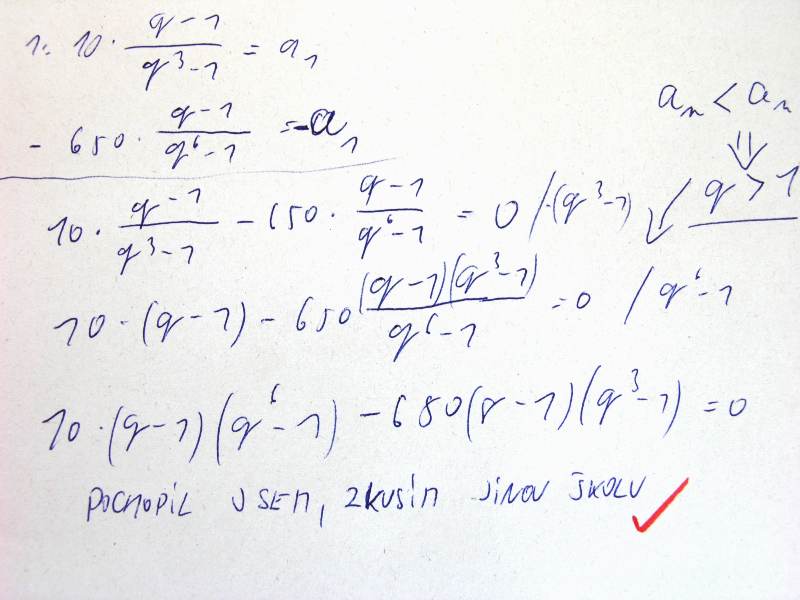 1. 10 · (q-1)/(q³-1) = a₁
- 650 · (q-1)/(q⁶-1) = -a₁
aₙ < aₙ
⇓
10 · (q-1)/(q³-1) - 650 · (q-1)/(q⁶-1) = 0 / ·(q³-1) ✓ q > 1
10 · (q-1) - 650 (q-1)(q³-1)/(q⁶-1) = 0 / q⁶-1
10 · (q-1)(q⁶-1) - 650(q-1)(q³-1) = 0
POCHOPIL JSEM, ZKUSÍM JINOU ŠKOLU